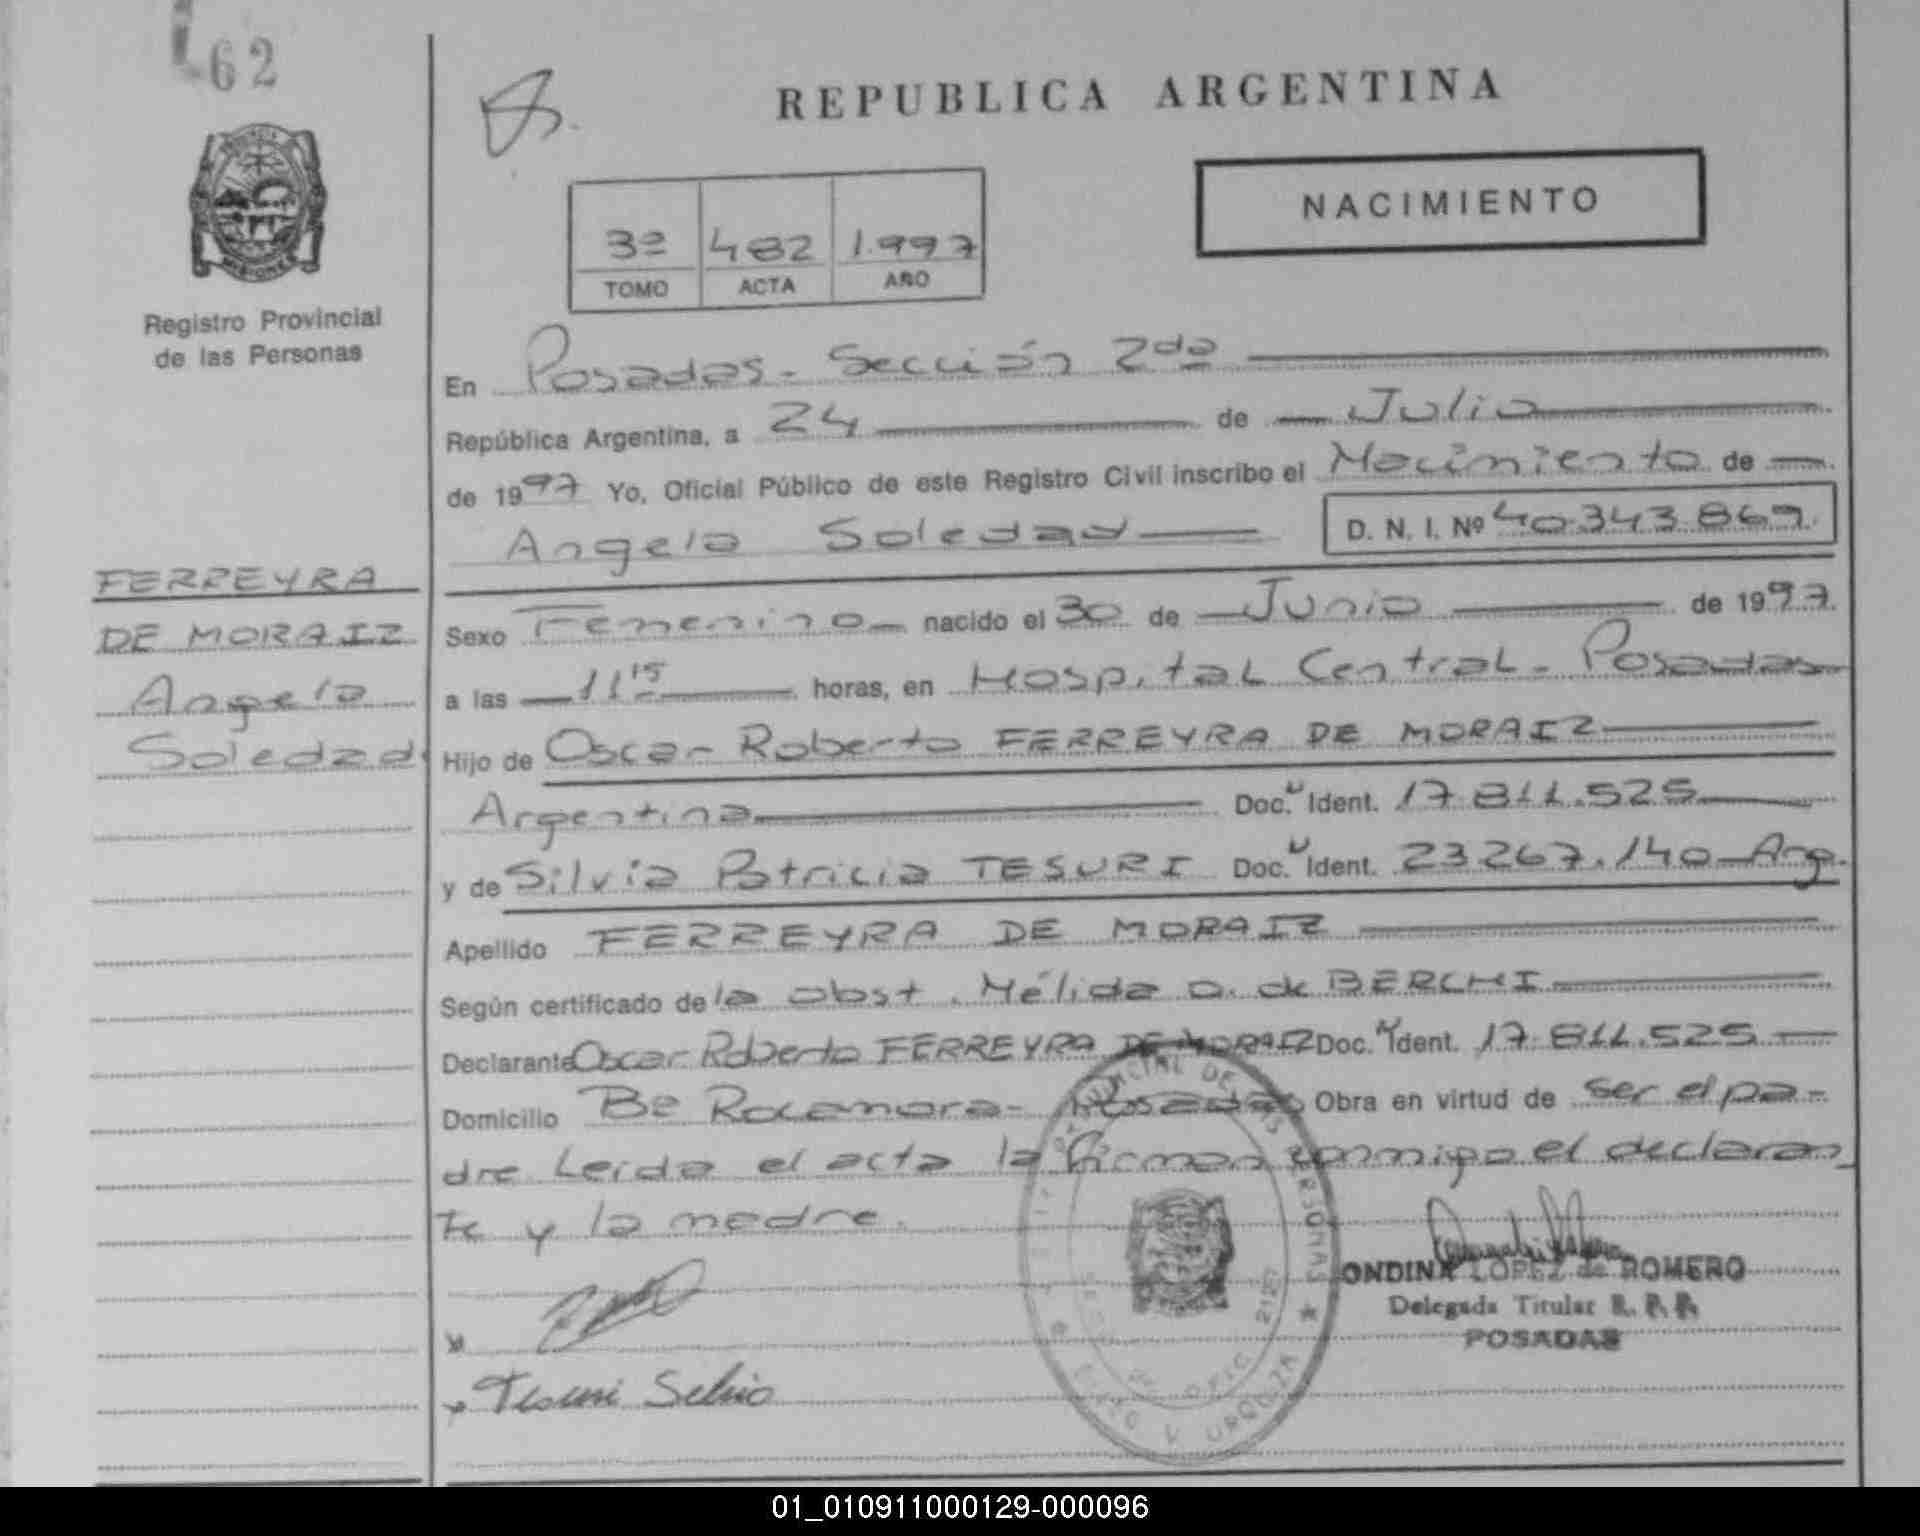 62
REPUBLICA ARGENTINA
NACIMIENTO
3º 482 1.997
TOMO ACTA AÑO
MISIONES
Registro Provincial
de las Personas
En Posadas - Sección 2da
República Argentina, a 24 de Julio
de 1997 Yo, Oficial Público de este Registro Civil inscribo el Nacimiento de
Angela Soledad D. N. I. Nº 40.343.869
FERREYRA
DE MORAIZ
Angela
Soledad
Sexo Femenino nacido el 30 de Junio de 1997
a las 11 15 horas, en Hospital Central - Posadas
Hijo de Oscar Roberto FERREYRA DE MORAIZ
Argentina Doc. Ident. 17.811.525
y de Silvia Patricia TESURI Doc. Ident. 23.267.140 Arg.
Apellido FERREYRA DE MORAIZ
Según certificado de la obst. Nélida O. de BERCHI
Declarante Oscar Roberto FERREYRA DE MORAIZ Doc. Ident. 17.811.525
Domicilio Bº Rocamora - Posadas Obra en virtud de ser el pa-
dre Leida el acta la firman conmigo el declaran
te y la madre.
ONDINA LOPEZ de ROMERO
Delegada Titular R. P. P.
POSADAS
Tesuri Silvia
01_010911000129-000096